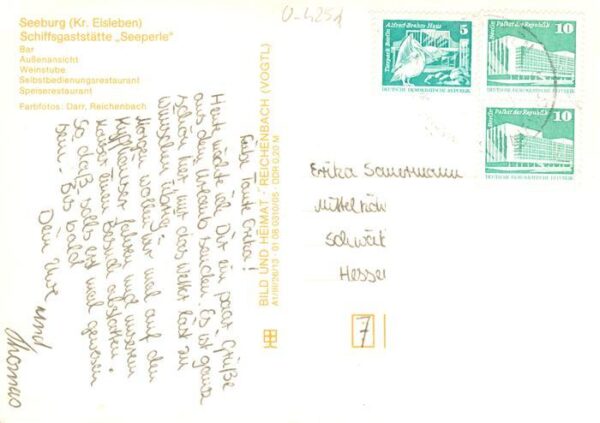 Seeburg (Kr. Eisleben)
Schiffsgaststätte „Seeperle"
Bar
Außenansicht
Weinstube
Selbstbedienungsrestaurant
Speiserestaurant
Farbfotos: Darr, Reichenbach
0-4251
Tierpark Berlin
Alfred-Brehm-Haus
5
DEUTSCHE DEMOKRATISCHE REPUBLIK
Berlin
Palast der Republik
10
DEUTSCHE DEMOKRATISCHE REPUBLIK
Berlin
Palast der Republik
10
DEUTSCHE DEMOKRATISCHE REPUBLIK
BILD UND HEIMAT · REICHENBACH (VOGTL)
A1/III/26/13 · 01 08 0310/05 · DDR 0,20 M
Liebe Tante Erika!
Heute möchte ich Dir ein paar Grüße
aus dem Urlaub senden. Es ist ganz
schön hier nur das Wetter läst zu
wünschen übrig.
Morgen wollen wir mal auf den
Kyffhäuser fahren und unserem
Kaiser einen Besuch abstatten.
So daß solls erst mal gewesen
sein. Bis bald
Dein Uwe und
Thomas
Erika Sauermann
Hessel
7